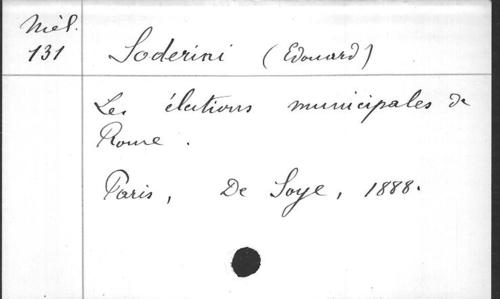 Mél.
131
Soderini (Edouard)
Les élections municipales de
Rome.
Paris, De Soye, 1888.